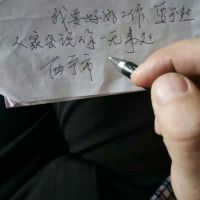 我要好好工作,要不然
人家会说你一无事处